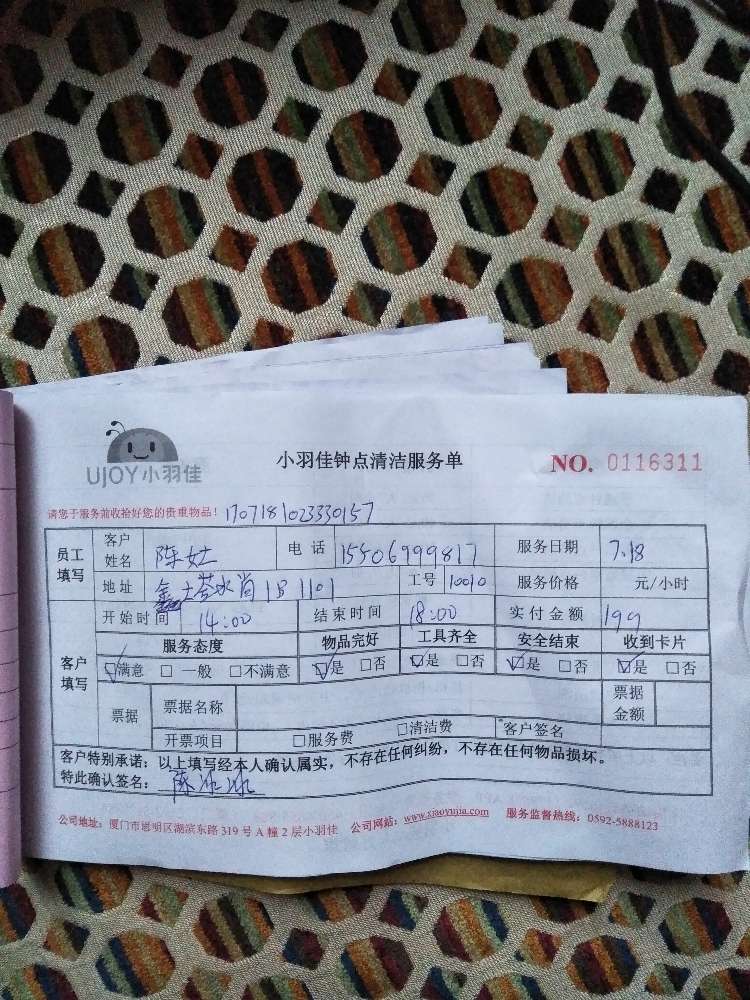 UJOY小羽佳
小羽佳钟点清洁服务单
NO. 0116311
请您于服务前收拾好您的贵重物品！170718102330157
员工填写 客户姓名 陈女士 电话 15506999817 服务日期 7.18
地址 塔水尚1B 1101 工号 10010 服务价格 元/小时
开始时间 14:00 结束时间 18:00 实付金额 199
客户填写 服务态度 物品完好 工具齐全 安全结束 收到卡片
☑满意 □一般 □不满意 ☑是 □否 ☑是 □否 ☑是 □否 ☑是 □否
票据 票据名称 票据金额
开票项目 □服务费 □清洁费 客户签名
客户特别承诺：以上填写经本人确认属实，不存在任何纠纷，不存在任何物品损坏。
特此确认签名：陈冰冰
公司地址：厦门市思明区湖滨东路319号A幢2层小羽佳 公司网站：www.xiaoyujia.com 服务监督热线：0592-5888123